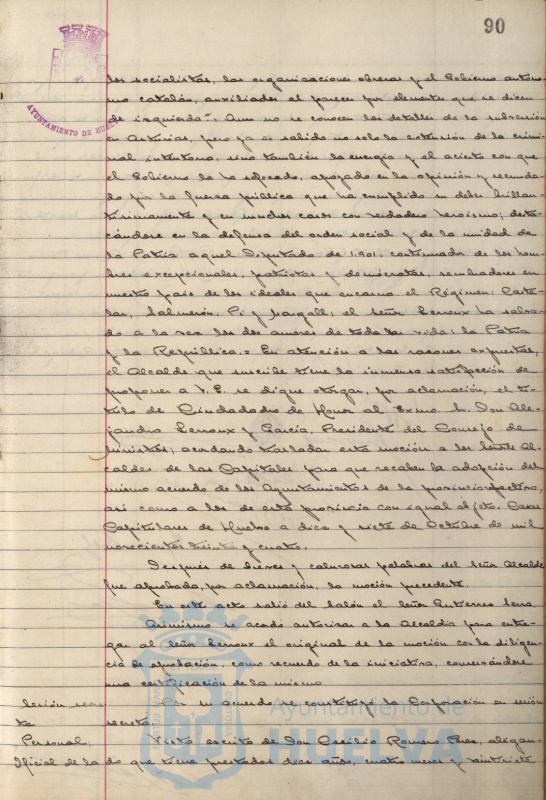 90
AYUNTAMIENTO DE HUELVA
los socialistas, las organizaciones obreras y el Gobierno autóno-
mo catalán, auxiliados al parecer por elementos que se dicen
de izquierda". Aun no se conocen los detalles de la subversión
en Asturias, pero ya es sabido no solo la extensión de la crimi-
nal intentona, sino también la energía y el acierto con que
el Gobierno la ha sofocado, apoyado en la opinión y secunda-
do por la fuerza pública que ha cumplido su deber brillan-
tísimamente y en muchos casos con verdadero heroismo; desta-
cándose en la defensa del orden social y de la unidad de
la Patria aquel Diputado de 1.901, continuador de los hom-
bres excepcionales, patriotas y demócratas, sembradores en
nuestro país de los ideales que encarna el Régimen: Caste-
lar, Salmerón, Pi y Margall; el Señor Lerroux ha salva-
do a la vez los dos amores de toda su vida: la Patria
y la República.= En atención a las razones expuestas,
el Alcalde que suscribe tiene la inmensa satisfacción de
proponer a V. E. se digne otorgar, por aclamación, el tí-
tulo de Ciudadano de Honor al Exmo Sr. Don Ale-
jandro Lerroux y García, Presidente del Consejo de
Ministros; acordando trasladar esta moción a los Señores Al-
caldes de las Capitales para que recaben la adopción del
mismo acuerdo de los Ayuntamientos de la provincia respectiva,
así como a los de esta provincia con igual objeto. Casas
Capitulares de Huelva a diez y siete de Octubre de mil
novecientos treinta y cuatro.
Después de breves y calurosas palabras del Señor Alcalde
fue aprobada, por aclamación, la moción precedente.
En este acto salió del salón el Señor Gutierrez Serra
Asimismo se acordó autorizar a la Alcaldía para entre-
gar al Señor Lerroux el original de la moción con la diligen-
cia de aprobación, como recuerdo de la iniciativa, conservándose
una certificación de la misma
Sesión secre Por su acuerdo se constituyó la Corporación en sesión
ta secreta.
Personal: Visto escrito de Don Cecilio Romero Perez, aligan-
Oficial de la do que tiene prestados diez años, cuatro meses y veintisiete
Ayuntamiento de
HUELVA